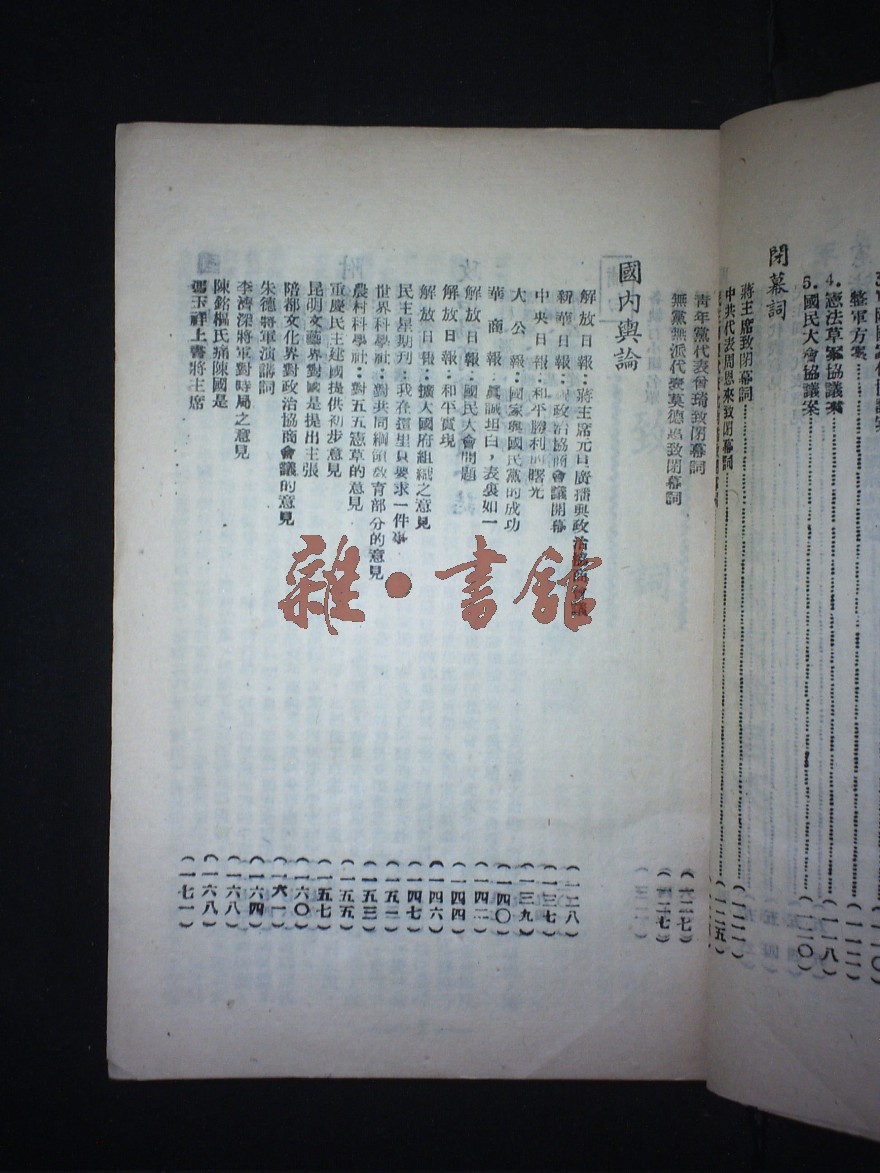 整軍方案……(一一二)
4.憲法草案協議案……(一一八)
5.國民大會協議案……(一二〇)
閉幕詞
蔣主席致閉幕詞
中共代表周恩來致閉幕詞……(一二五)
青年黨代表曾琦致閉幕詞
無黨無派代表莫德惠致閉幕詞
國內輿論
解放日報：蔣主席元旦廣播與政治協商會議(一二八)
新華日報：祝政治協商會議開幕(一三七)
中央日報：和平勝利的曙光(一三九)
大公報：國家與國民黨的成功(一四〇)
華商報：眞誠坦白，表裏如一(一四二)
解放日報：國民大會問題(一四四)
解放日報：和平實現(一四六)
解放日報：擴大國府組織之意見(一四七)
民主星期刊：我在這里只要求一件事(一五一)
世界科學社：對共同綱領敎育部分的意見(一五三)
農村科學社：對五五憲草的意見(一五五)
重慶民主建國提供初步意見(一五七)
昆明文藝界對國是提出主張(一六〇)
陪都文化界對政治協商會議的意見(一六一)
朱德將軍演講詞(一六四)
李濟深將軍對時局之意見(一六八)
陳銘樞氏痛陳國是(一六八)
馮玉祥上書蔣主席(一七一)
雜·書館